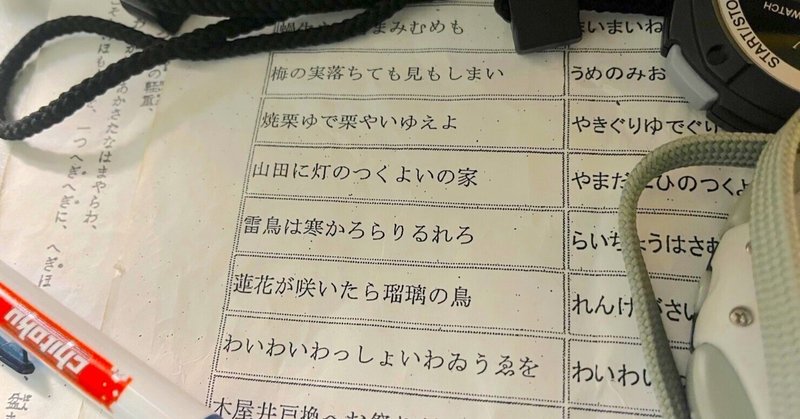 まみむめも まいまいね
梅の実落ちても見もしまい うめのみお
焼栗ゆで栗やいゆえよ やきぐりゆでぐり
山田に灯のつくよいの家 やまだ ひのつくよ
雷鳥は寒かろらりるれろ らいちょうはさむ
蓮花が咲いたら瑠璃の鳥 れんげ さい
わいわいわっしょいわゐうゑを わいわい
の軽重、
あかさたなはまやらわ、
一つへぎへぎに、へぎほ
WATCH
START/STO